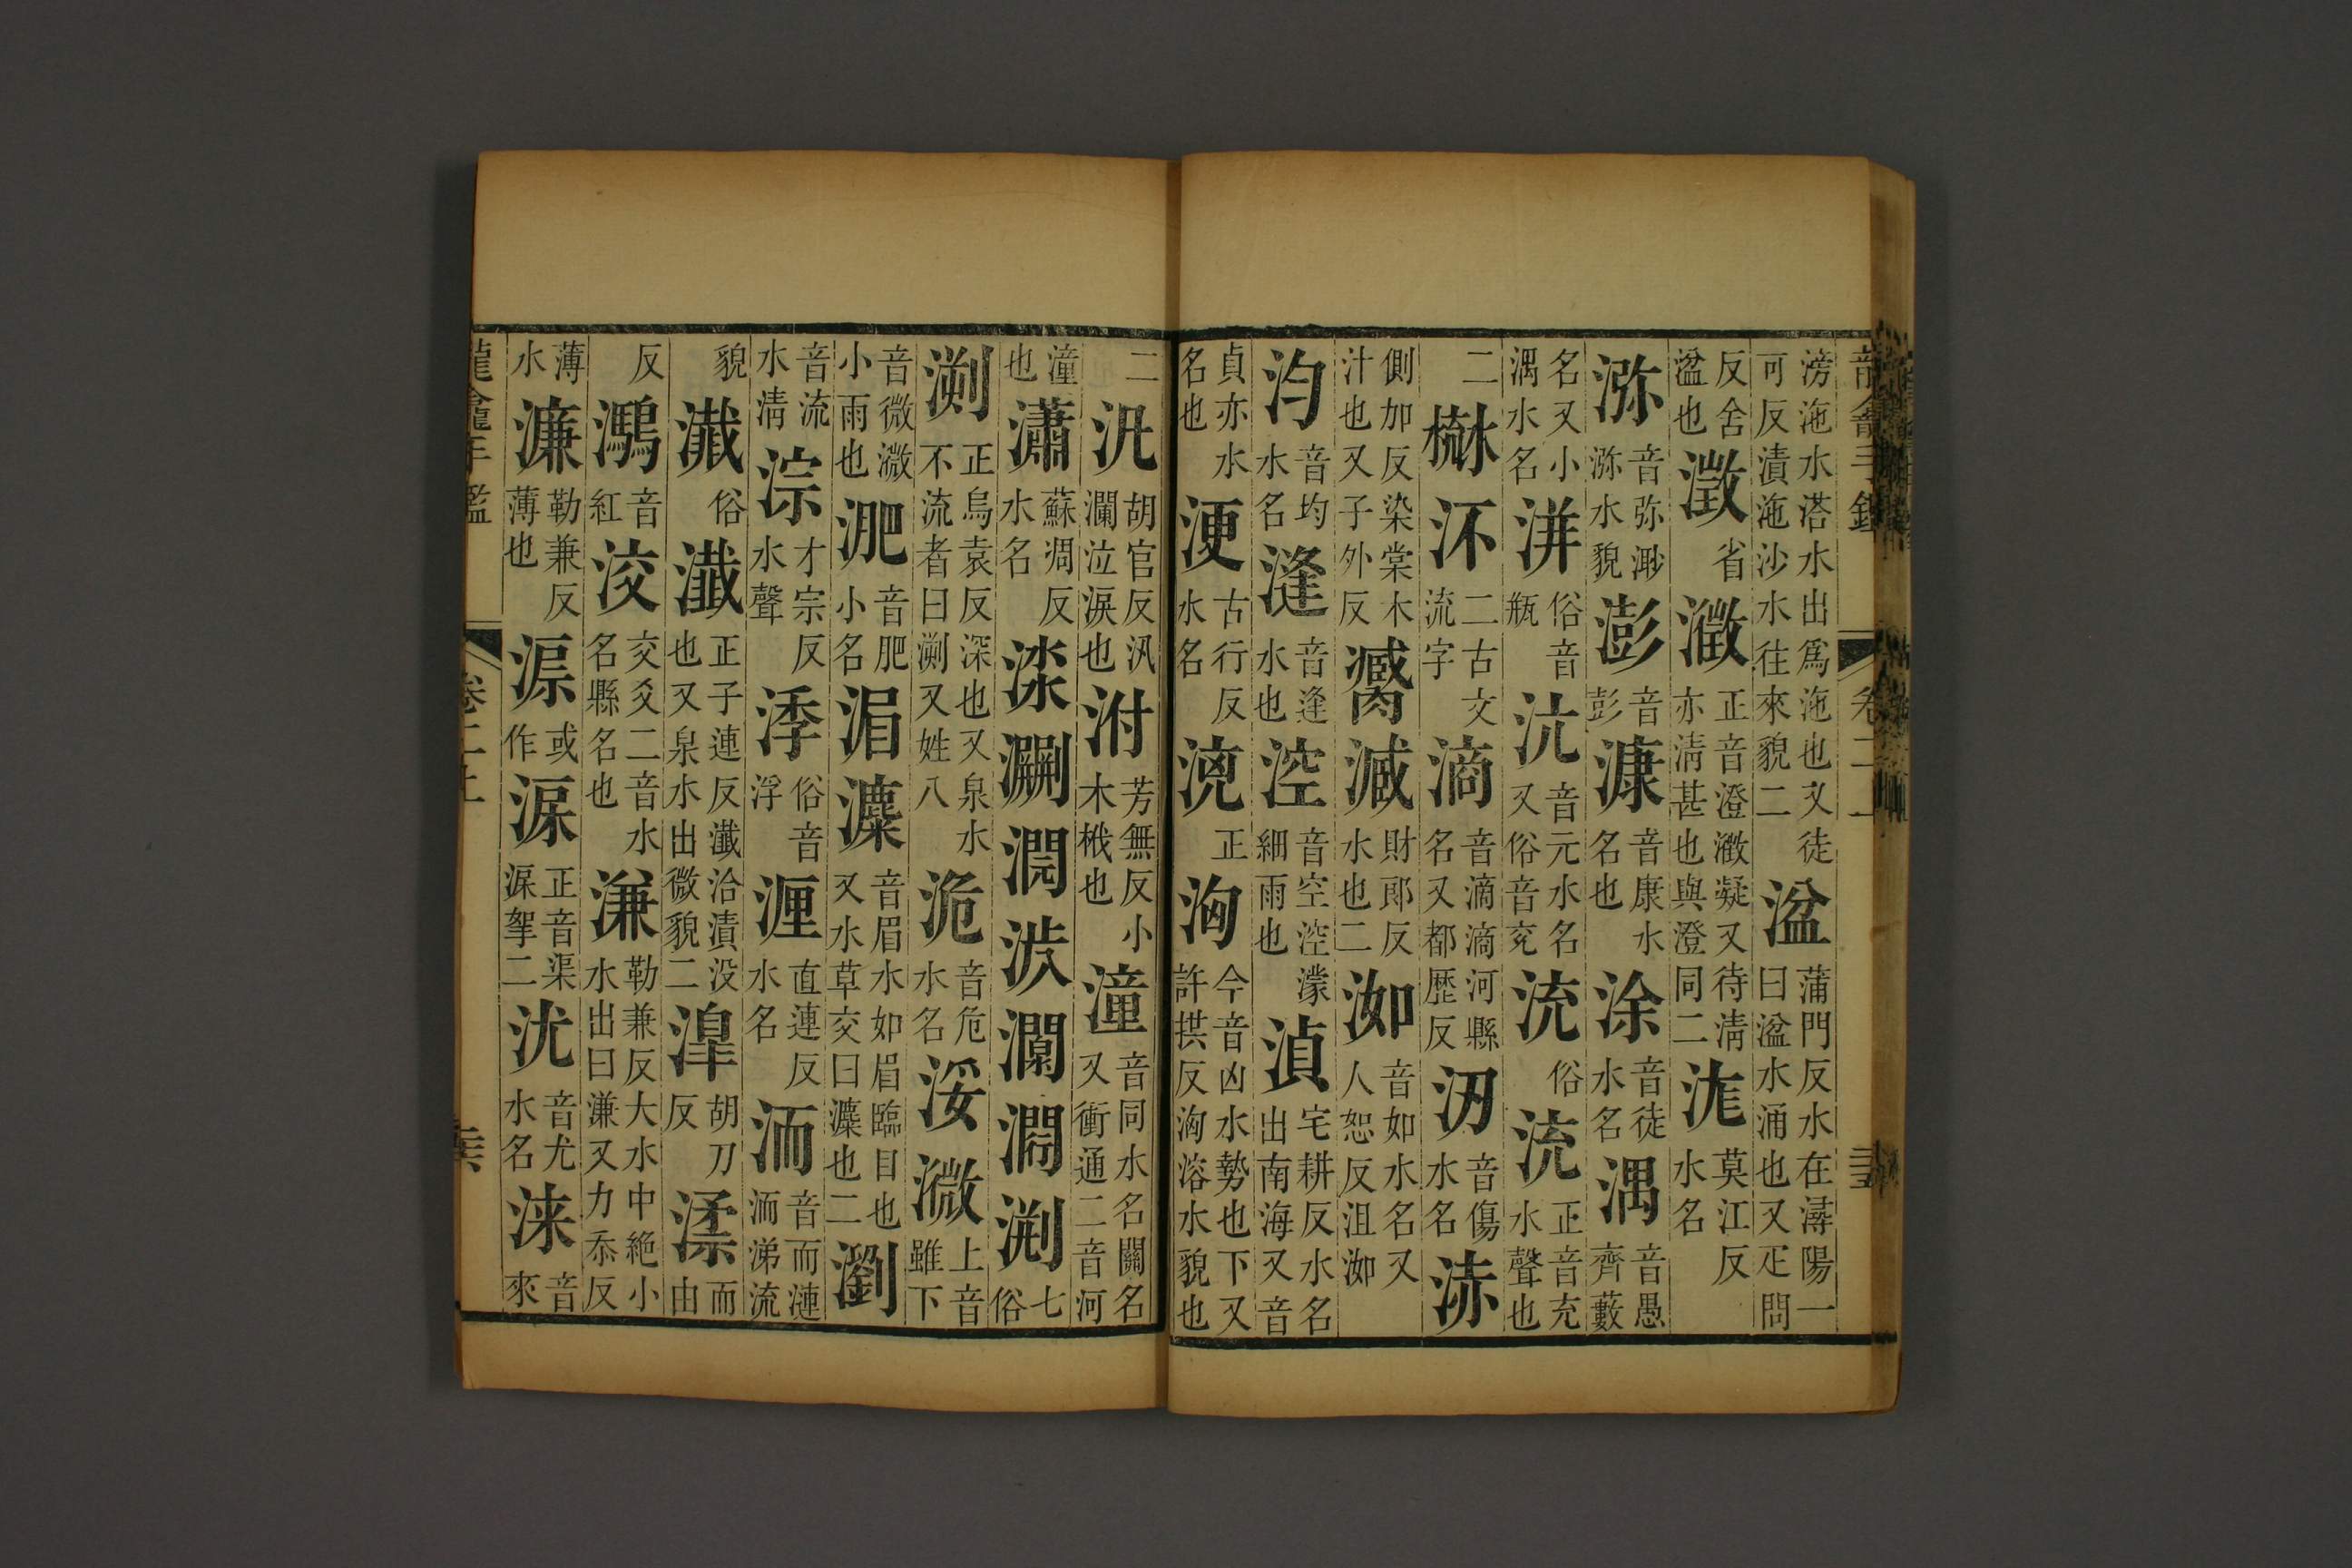 龍龕手鑑 卷二上
滂沲水㳠水出為沲也又徒可反漬沲沙水往來貌二 湓 蒲門反水在潯陽一曰湓水涌也又疋問
反舍湓也 澂 省 瀓 正音澄瀓凝又待清亦清甚也與澄同二 浝 莫江反水名
㳽 音弥渺㳽水貌 澎 音彭 漮 音康水名也 涂 音徒水名 湡 音愚齊藪
名又小湡水名 洴 俗音瓶 沅 音元水名又俗音兖 流 俗 㳘 正音充水聲也
二 二古文流字 滴 音滴滴河縣名又都歷反 音傷水名 浾
側加反染棠木汁也又子外反 財郎反水也二 洳 音如水名又人恕反沮洳
汮 音均水名 漨 音逢水也 涳 音空涳濛細雨也 湞 宅耕反水名出南海又音
貞亦水名也 浭 古行反水名 正 洶 今音凶水勢也下又許拱反洶溶水貌也
二 汍 胡官反汍瀾泣淚也 泭 芳無反小木栰也 潼 音同水名關名又衝通二音河
潼也 潚 蘇凋反水名 七俗
渆 正烏袁反深也又泉水不流者曰渆又姓八 洈 音危水名 浽溦 上音雖下
音微溦小雨也 淝 音肥小名 湄 音眉水如眉臨目也又水草交曰也二 瀏
音流水清 淙 才宗反水聲 俗音浮 湹 直連反水名 洏 音而漣洏涕流
貌 俗 瀸 正子連反瀸洽漬没也又泉水出微貌二 滜 胡刀反 渘 而由
反 鴻 音紅 洨 交爻二音水名縣名也 溓 勒兼反大水中絕小水出曰溓又力忝反
薄水 濂 勒兼反薄也 或作 淭 正音渠淭挐二 沋 音尤水名 淶 音來
龍龕手鑑 卷二上